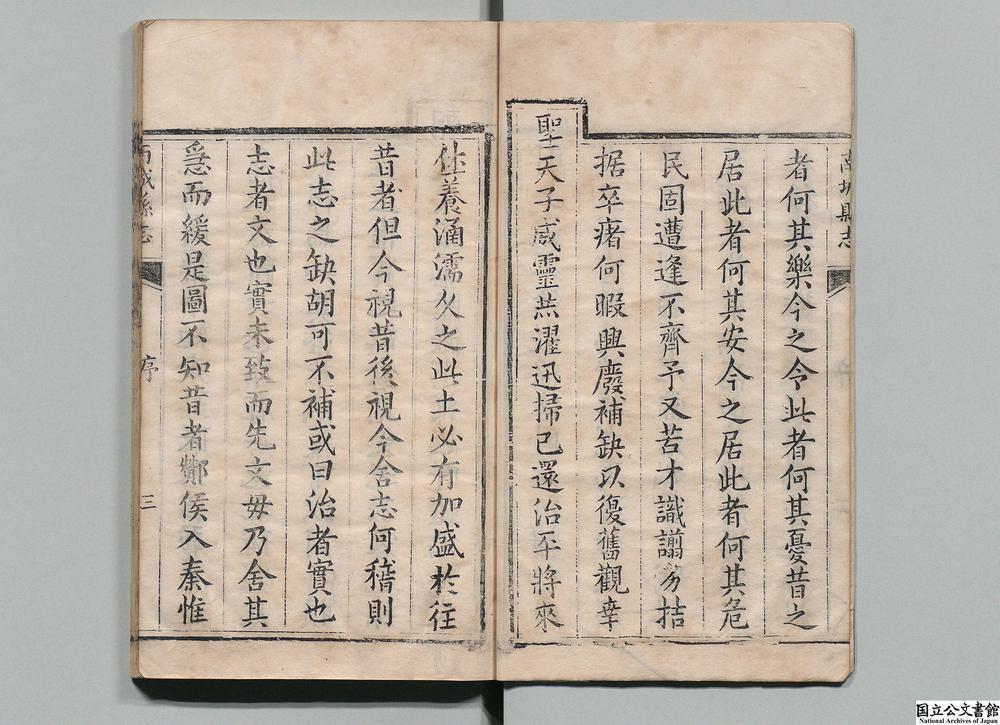 者何其樂今之令此者何其憂昔之
居此者何其安今之居此者何其危
民固遭逢不齊予又苦才識譾劣拮
据卒瘏何暇興廢補缺以復舊觀幸
聖天子威靈燕濯迅掃已還治平將來
休養涵濡久之此土必有加盛於往
昔者但今視昔後視今舍志何稽則
此志之缺胡可不補或曰治者實也
志者文也實未致而先文毋乃舍其
急而緩是圖不知昔者酇侯入秦惟
縣志
序
三
国立公文書館
National Archives of Japan